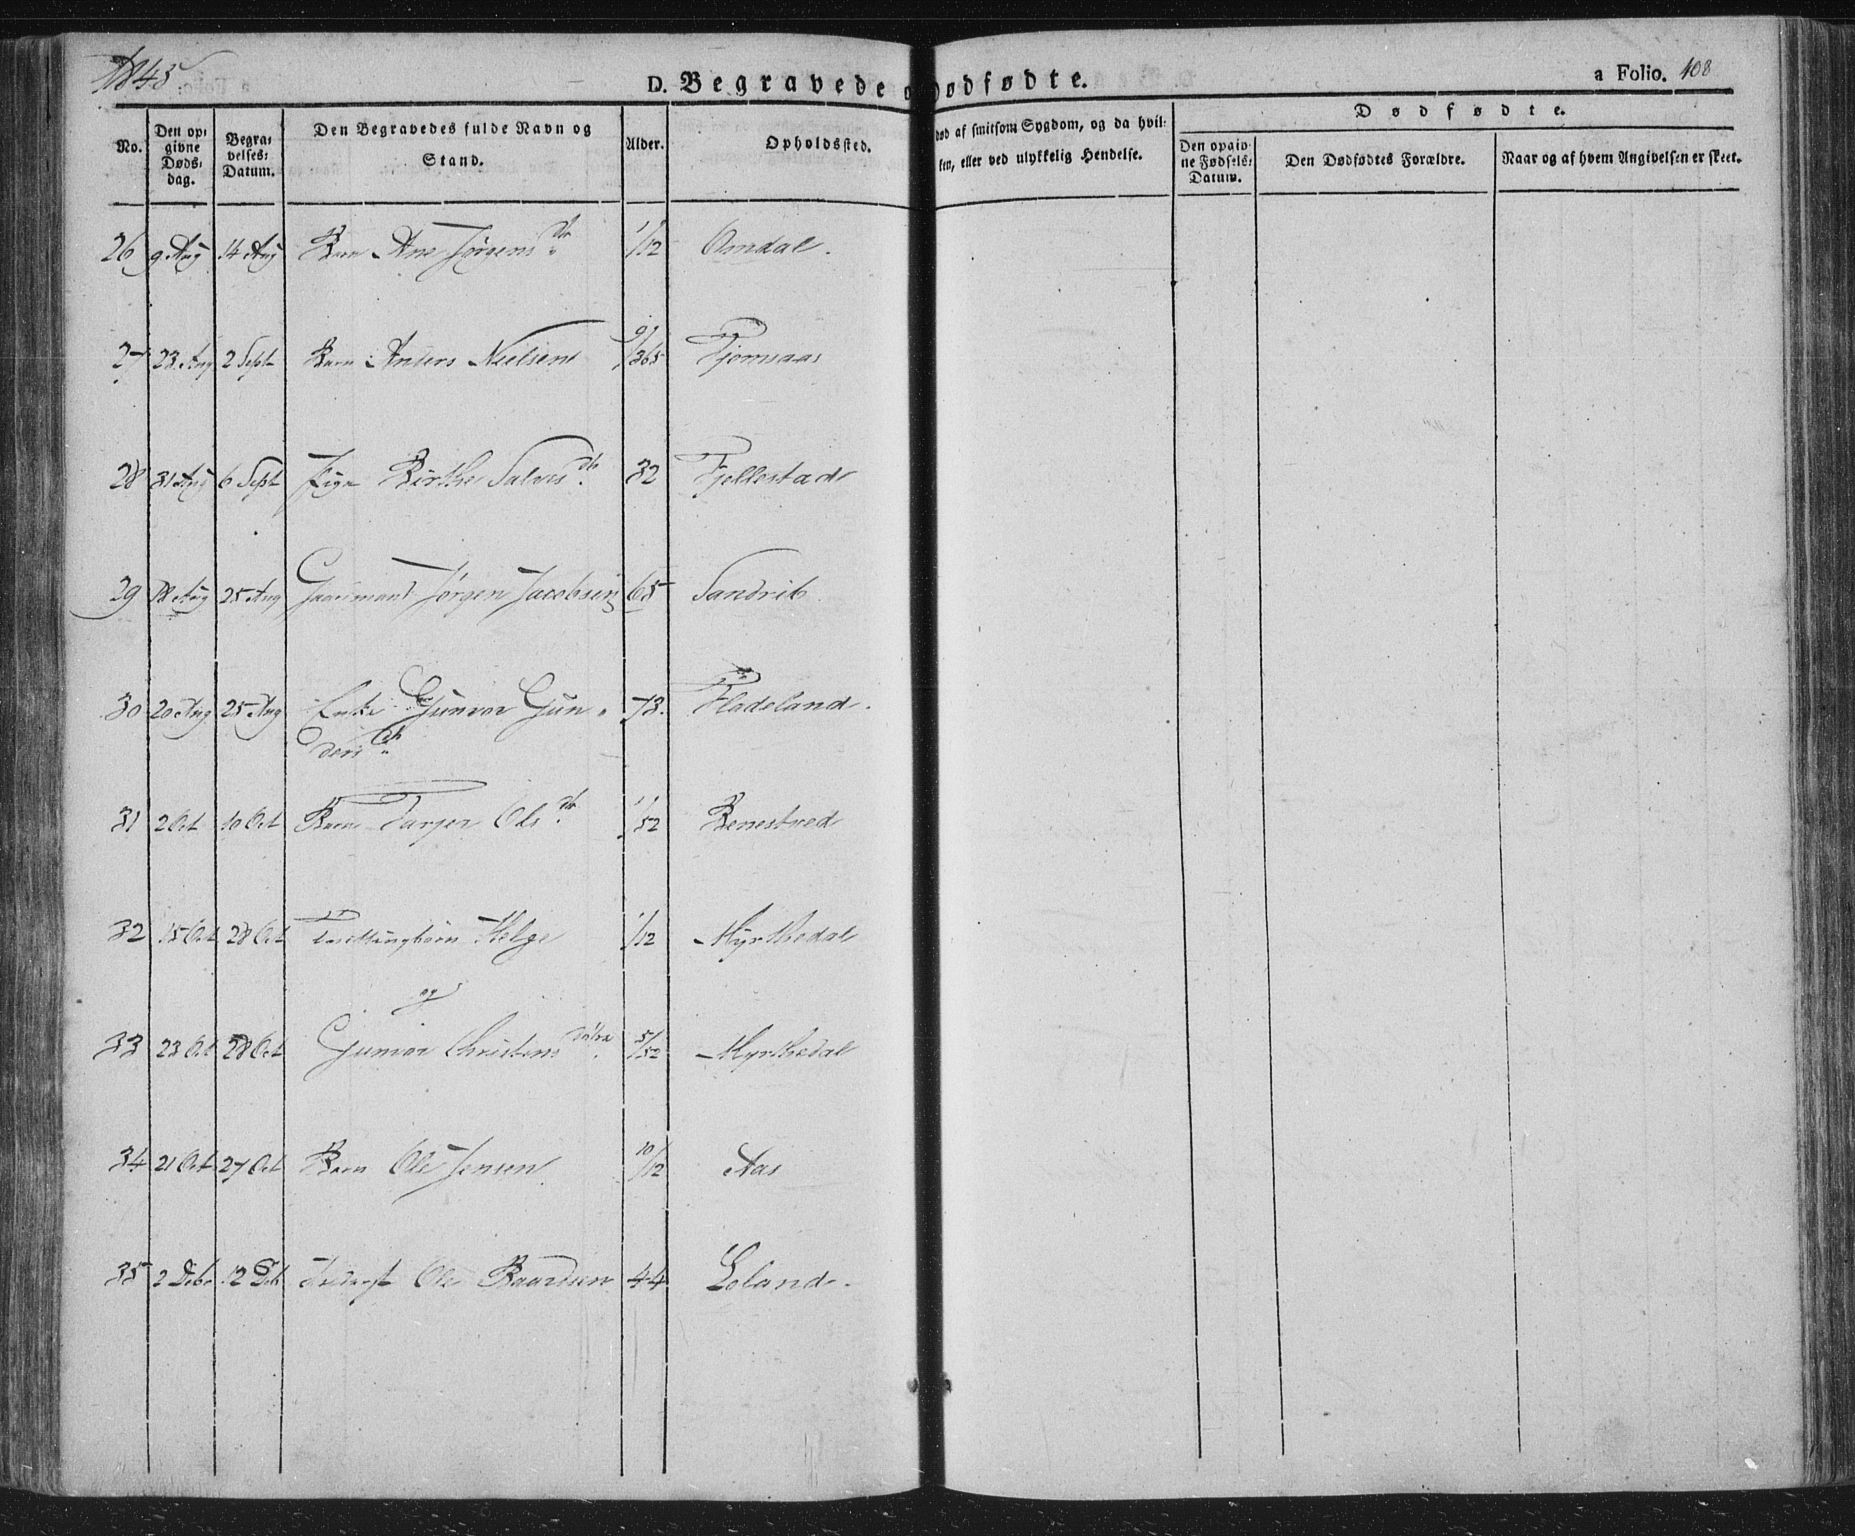 1845
D. Begravede o
Dødfødte.
a Folio. 108
No.
Den op-
givne
Døds-
dag.
Begra-
velses-
Datum.
Den Begravedes fulde Navn og
Stand.
Alder.
Opholdssted.
død af smitsom Sygdom, og da hvil-
ken, eller ved ulykkelig Hendelse.
Dødfødte.
Den opgiv-
ne Fødsels-
Datum.
Den Dødfødtes Forældre.
Naar og af hvem Angivelsen er skeet.
26 9 Aug 14 Aug Barn Ane Jørgens dtr 1/12 Omdal.
27 23 Aug 2 Sept Barn Anders Nielsen 9/365 Tjomsaas
28 31 Aug 6 Sept Pige Birthe Salves dtr. 32 Fjellestad
29 Aug 25 Aug Gaardmand Jørgen Jacobsen 65 Sandrib
30 20 Aug 25 Aug Enke Gunvor Gun- 73. Fladeland.
ders dtr
31 2 Oct 10 Oct Barn Tarjer Ols dtr. 1/52 Benestved
32 15 Oct 28 Oct Tvillingbørn Helge 1/12 Myrthedal
og
33 23 Oct 28 Oct Gunvor Christens døtre. 5/52 Myrthedal
34 21 Oct 27 Oct Barn Ole Jensen 10/12 Aas
35 2 Debr 12 Deb Inderst Ole Baardsen 44 Loland.